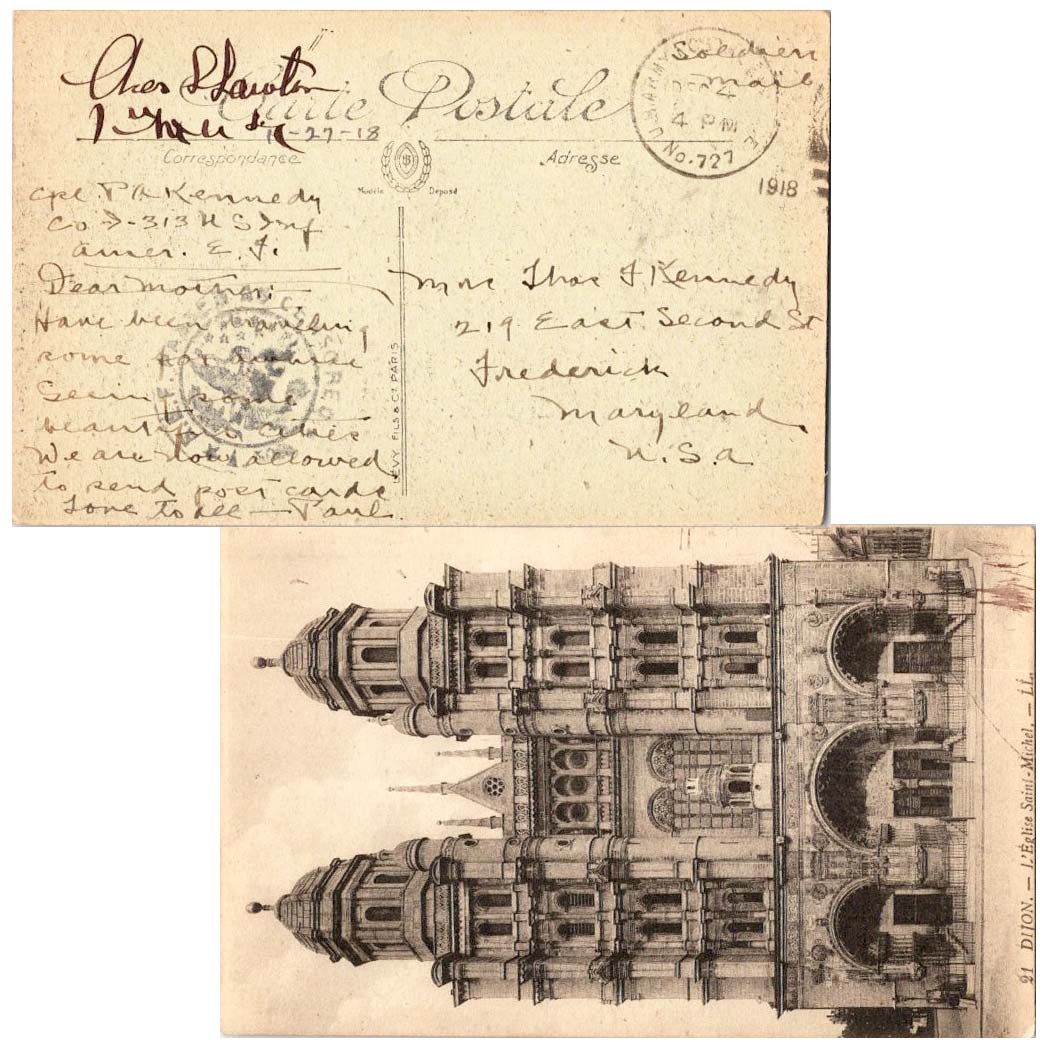 Chas S Lawton
1st Lt
11-27-18
Carte Postale
Correspondance
Adresse
Modèle Déposé
Soldiers
Mail
U.S. ARMY
DEC 4
4 PM
No. 727
1918
Cpl. P A Kennedy
Co - 313 U S Inf
Amer. E. F.
Dear Mother:-
Have been traveling
some
Seeing some
beautiful cities
We are now allowed
to send post cards
Love to all - Paul.
Mrs Thos F Kennedy
219 East Second St
Frederick
Maryland
U.S.A
LEVY FILS & Cie PARIS
21 DIJON. — L'Église Saint-Michel. — LL.